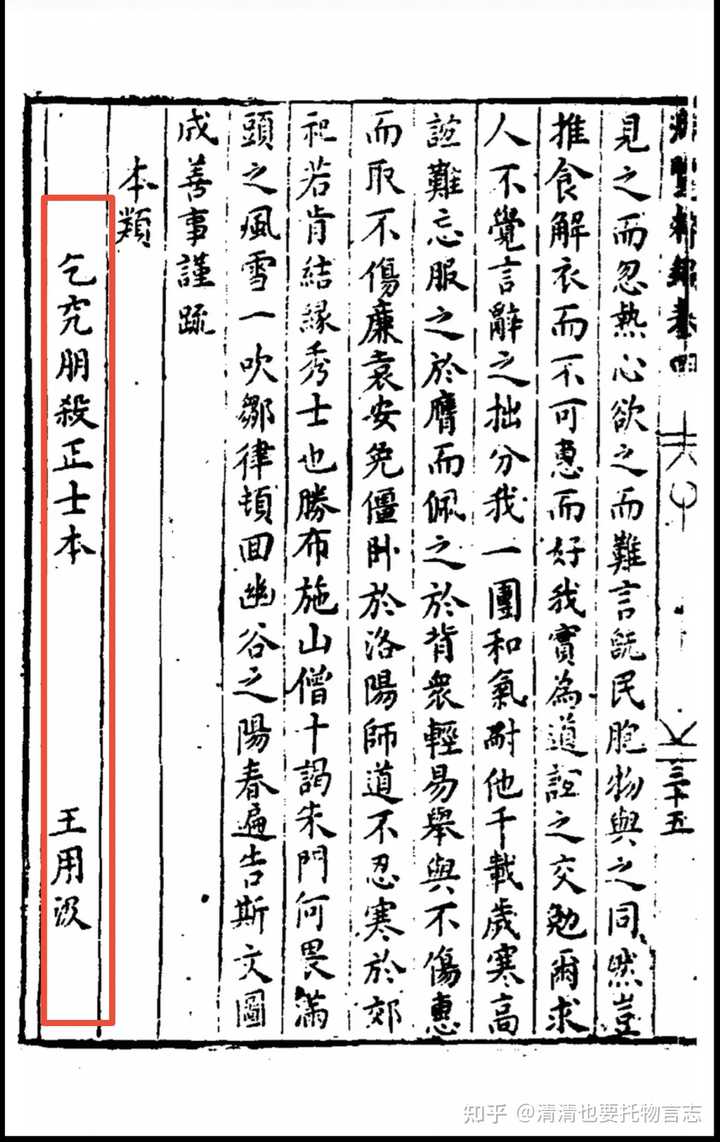 卷四
三十五
見之而忽热心欲之而難言既民胞物與之同然豈
推食解衣而不可惠而好我實為道誼之交勉爾求
人不覺言辭之拙分我一團和氣耐他千載歲寒高
誼難忘服之於膺而佩之於背衆輕易舉與不傷惠
而取不傷廉袁安免僵卧於洛陽師道不忍寒於郊
祀若肯結緣秀士也勝布施山僧十謁朱門何畏滿
頭之風雪一吹鄒律頓回幽谷之陽春遍告斯文圖
成善事謹疏
本類
乞究朋殺正士本 王用汲
知乎 @清清也要托物言志